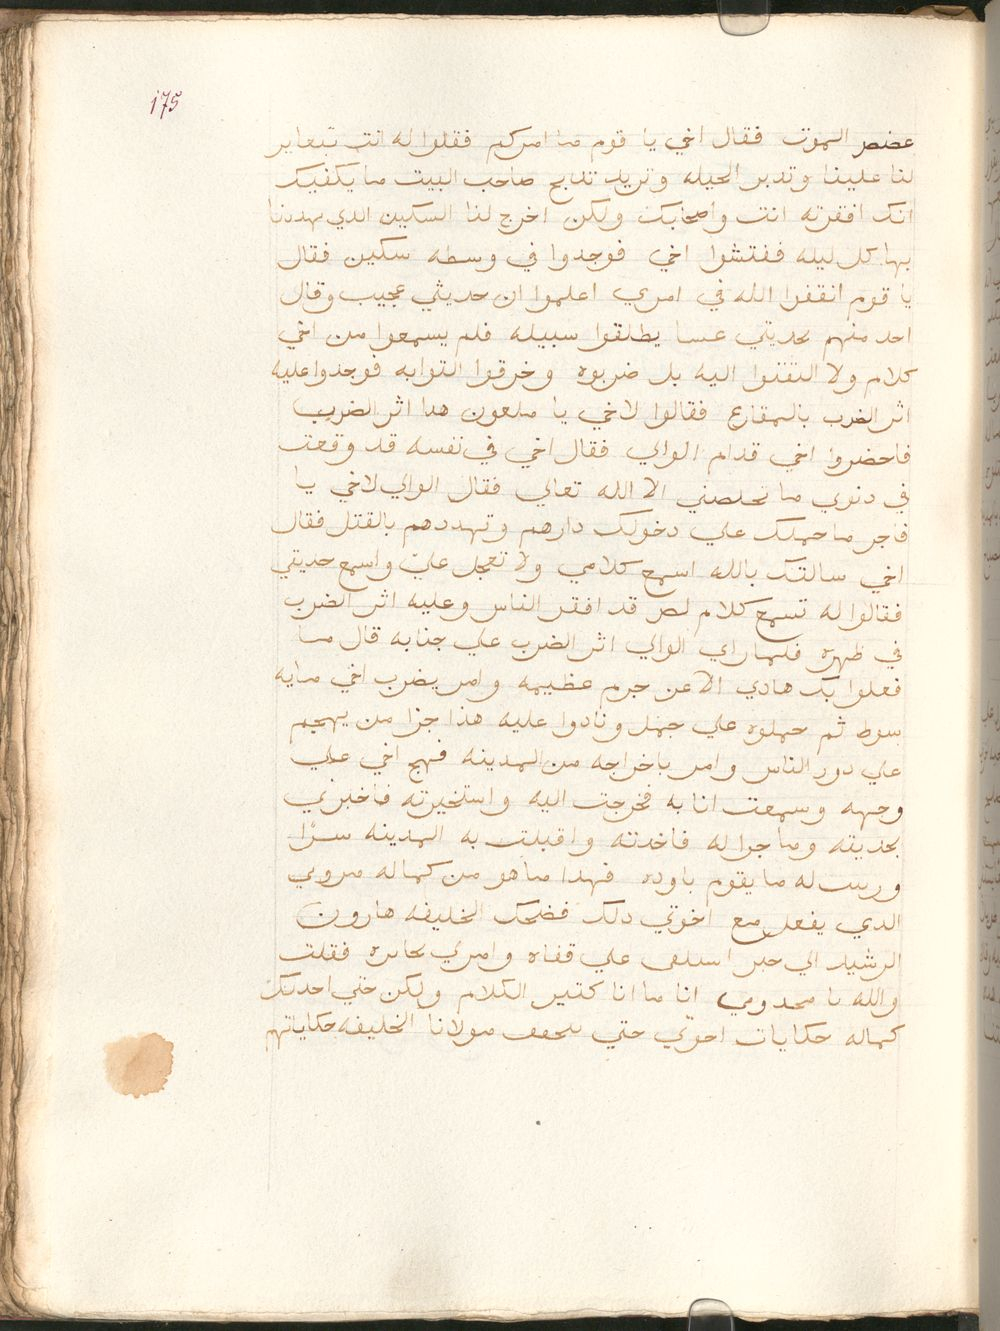 175
غصص الموت فقال اخي يا قوم ما امركم فقلوا له انت تبعاير
لنا علينا وتدبر الحيله وتريد تدبح صاحب البيت ما يكفيك
انك افقرته انت واصحابك ولكن اخرج لنا السكين الدي تهددنا
بها كل ليله ففتشوا اخي فوجدوا في وسطه سكين فقال
يا قوم اتقفوا الله في امري اعلموا ان حديثي عجيب وقال
احد منهم بحديثي عسا يطلقوا سبيله فلم يسمعوا من اخي
كلام ولا التفتوا اليه بل ضربوه وخرقوا اثوابه فوجدوا عليه
اثر الضرب بالمقارع فقالوا لاخي يا ملعون هدا اثر الضرب
فاحضروا اخي قدام الوالي فقال اخي في نفسه قد وقعت
في دنوبي ما تخلصني الا الله تعالي فقال الوالي لاخي يا
فاجر ما حملك علي دخولك دارهم وتهددهم بالقتل فقال
اخي سالتك بالله اسمع كلامي ولا تعجل عليّ واسمع حديتي
فقالوا له تسمع كلام لص قد افقر الناس وعليه اثر الضرب
في ظهره فلما راي الوالي اثر الضرب علي جنابه قال ما
فعلوا بك هادي الا عن جرم عظيمه وامر يضرب اخي مايه
سوط ثم حملوه علي جمل ونادوا عليه هذا جزا من يهجم
علي دور الناس وامر باخراجه من المدينه فهج اخي علي
وجهه وسمعت انا به فخرجت اليه واستخبرته فاخبرني
بحديثه وما جرا له فاخدته واقبلت به المدينه سرًا
ورتبت له ما يقوم باوده فهذا ما هو من كماله مروتي
الدي يفعل مع اخوتي دلك فضحك الخليفه هارون
الرشيد الي حتي استلقى علي قفاه وامر لي بجايزه فقلت
والله يا مخدومي انا ما انا كتير الكلام ولكن حتي احدتك
كماله حكايات اخوّتي حتي يتحقق مولانا الخليفه حكاياتهم